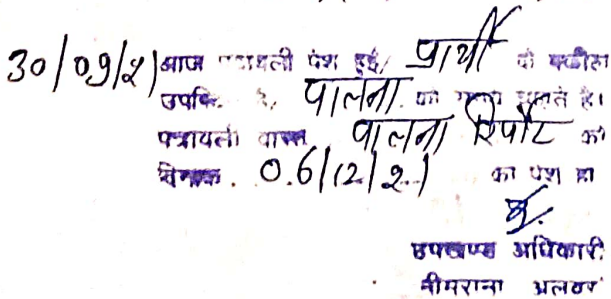 30/09/21 आज पत्रावली पेश हुई, प्रार्थी के वकील
उपस्थित है, पालना का समय चाहते है।
पत्रावली वास्ते पालना रिपोर्ट को
दिनांक. 06/12/21 को पेश हो
उपखण्ड अधिकारी
नीमराना अलवर